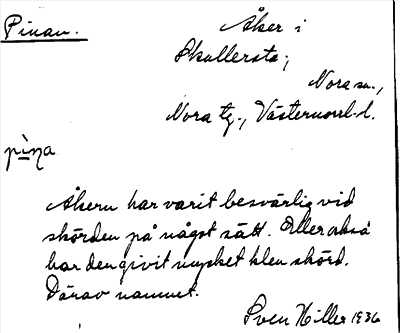 Pinan.
Åker i
Skullersta,
Nora sn.,
Nora tg., Västernorrl-d.
pìna
Åkern har varit besvärlig vid
skörden på något sätt. Eller också
har den givit mycket klen skörd.
Därav namnet.
Sven Hiller 1936